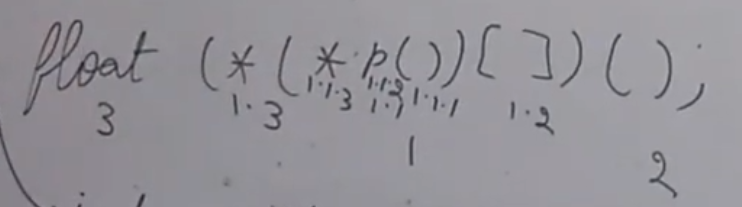 float (*(*p())[ ])();
1.1.3 1.1.2 1.1.1
3 1.3 1.1 1.2
1 2